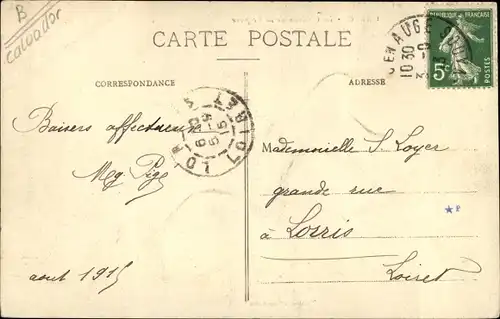 B
Calvados
CARTE POSTALE
CORRESPONDANCE
ADRESSE
REPUBLIQUE FRANÇAISE
5c
POSTES
EN AUGE
10 30
LORRIS
LOIRET
15
Baisers affectueux
Meg. Pige
Mademoiselle S. Loyer
grande rue
à Lorris
Loiret
aout 1915